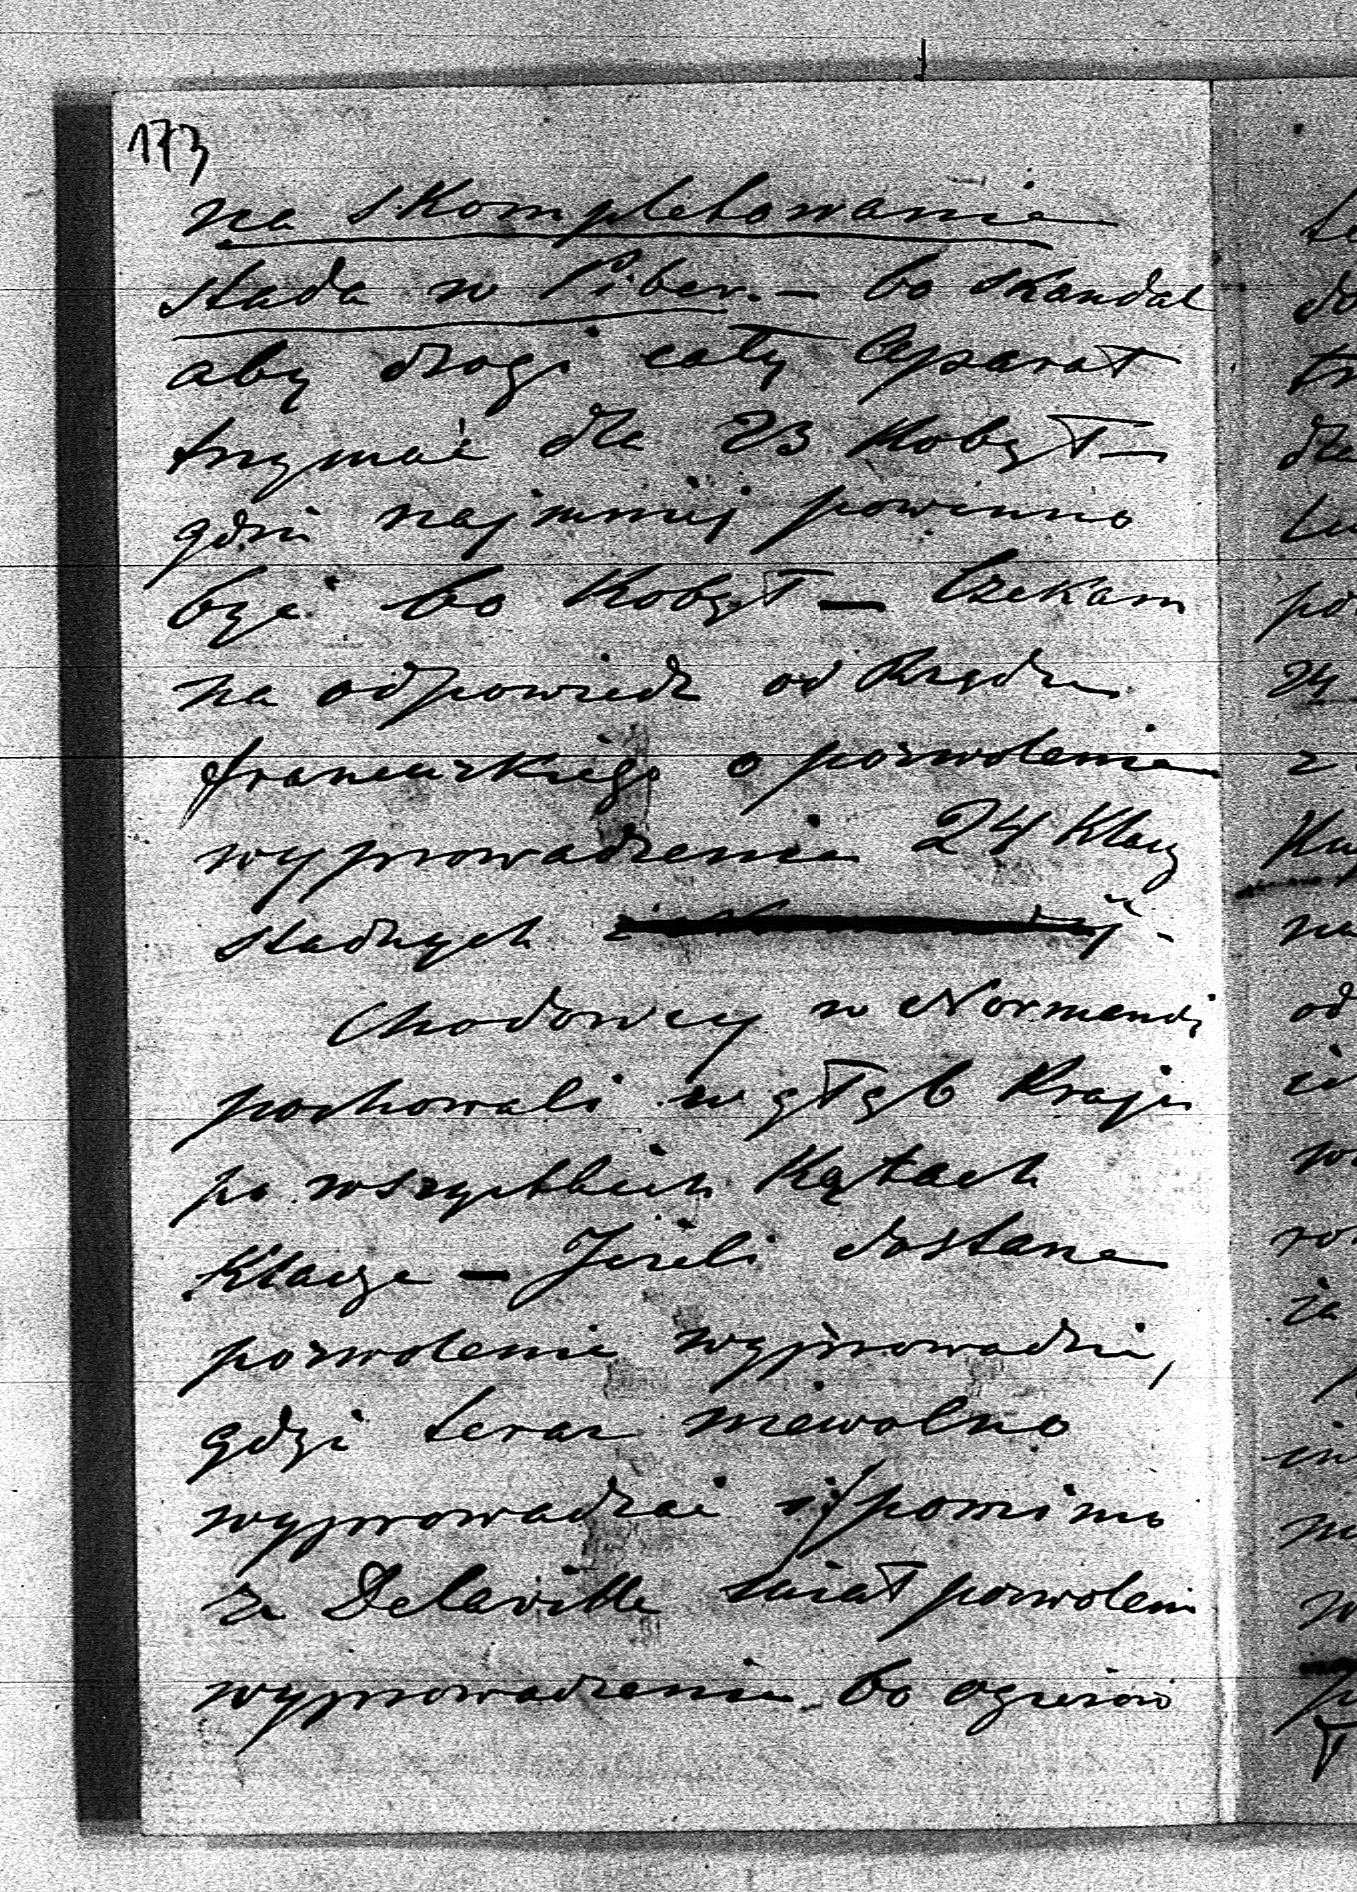 173
na skompletowanie
stada w Piber. — bo skandal
aby drogi cały aparat
trzymać dla 23 kobył —
gdzie najmniej powinno
być 60 kobył — Czekam
na odpowiedź od Rządu
francuzkiego o pozwolenie
wyprowadzenia 24 klaczy
stadnych
Chodowcy w Normandi
pochowali w głąb kraju
po wszystkich kątach
klacze — Jeżeli dostanę
pozwolenie wyprowadzić,
gdzi teraz niewolno
wyprowadzać i pomimo
że Delaville miał pozwoleni
wyprowadzenia 60 ogierów